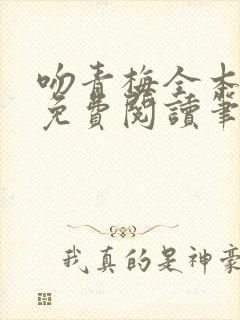 吻青梅全本
免費閱讀筆
我真的是神豪